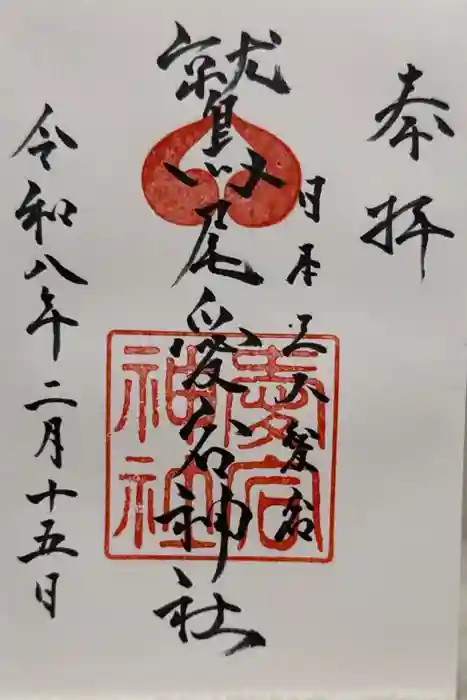 奉拝
日本三大愛宕
鷲尾愛宕神社
愛宕
神社
令和八年二月十五日